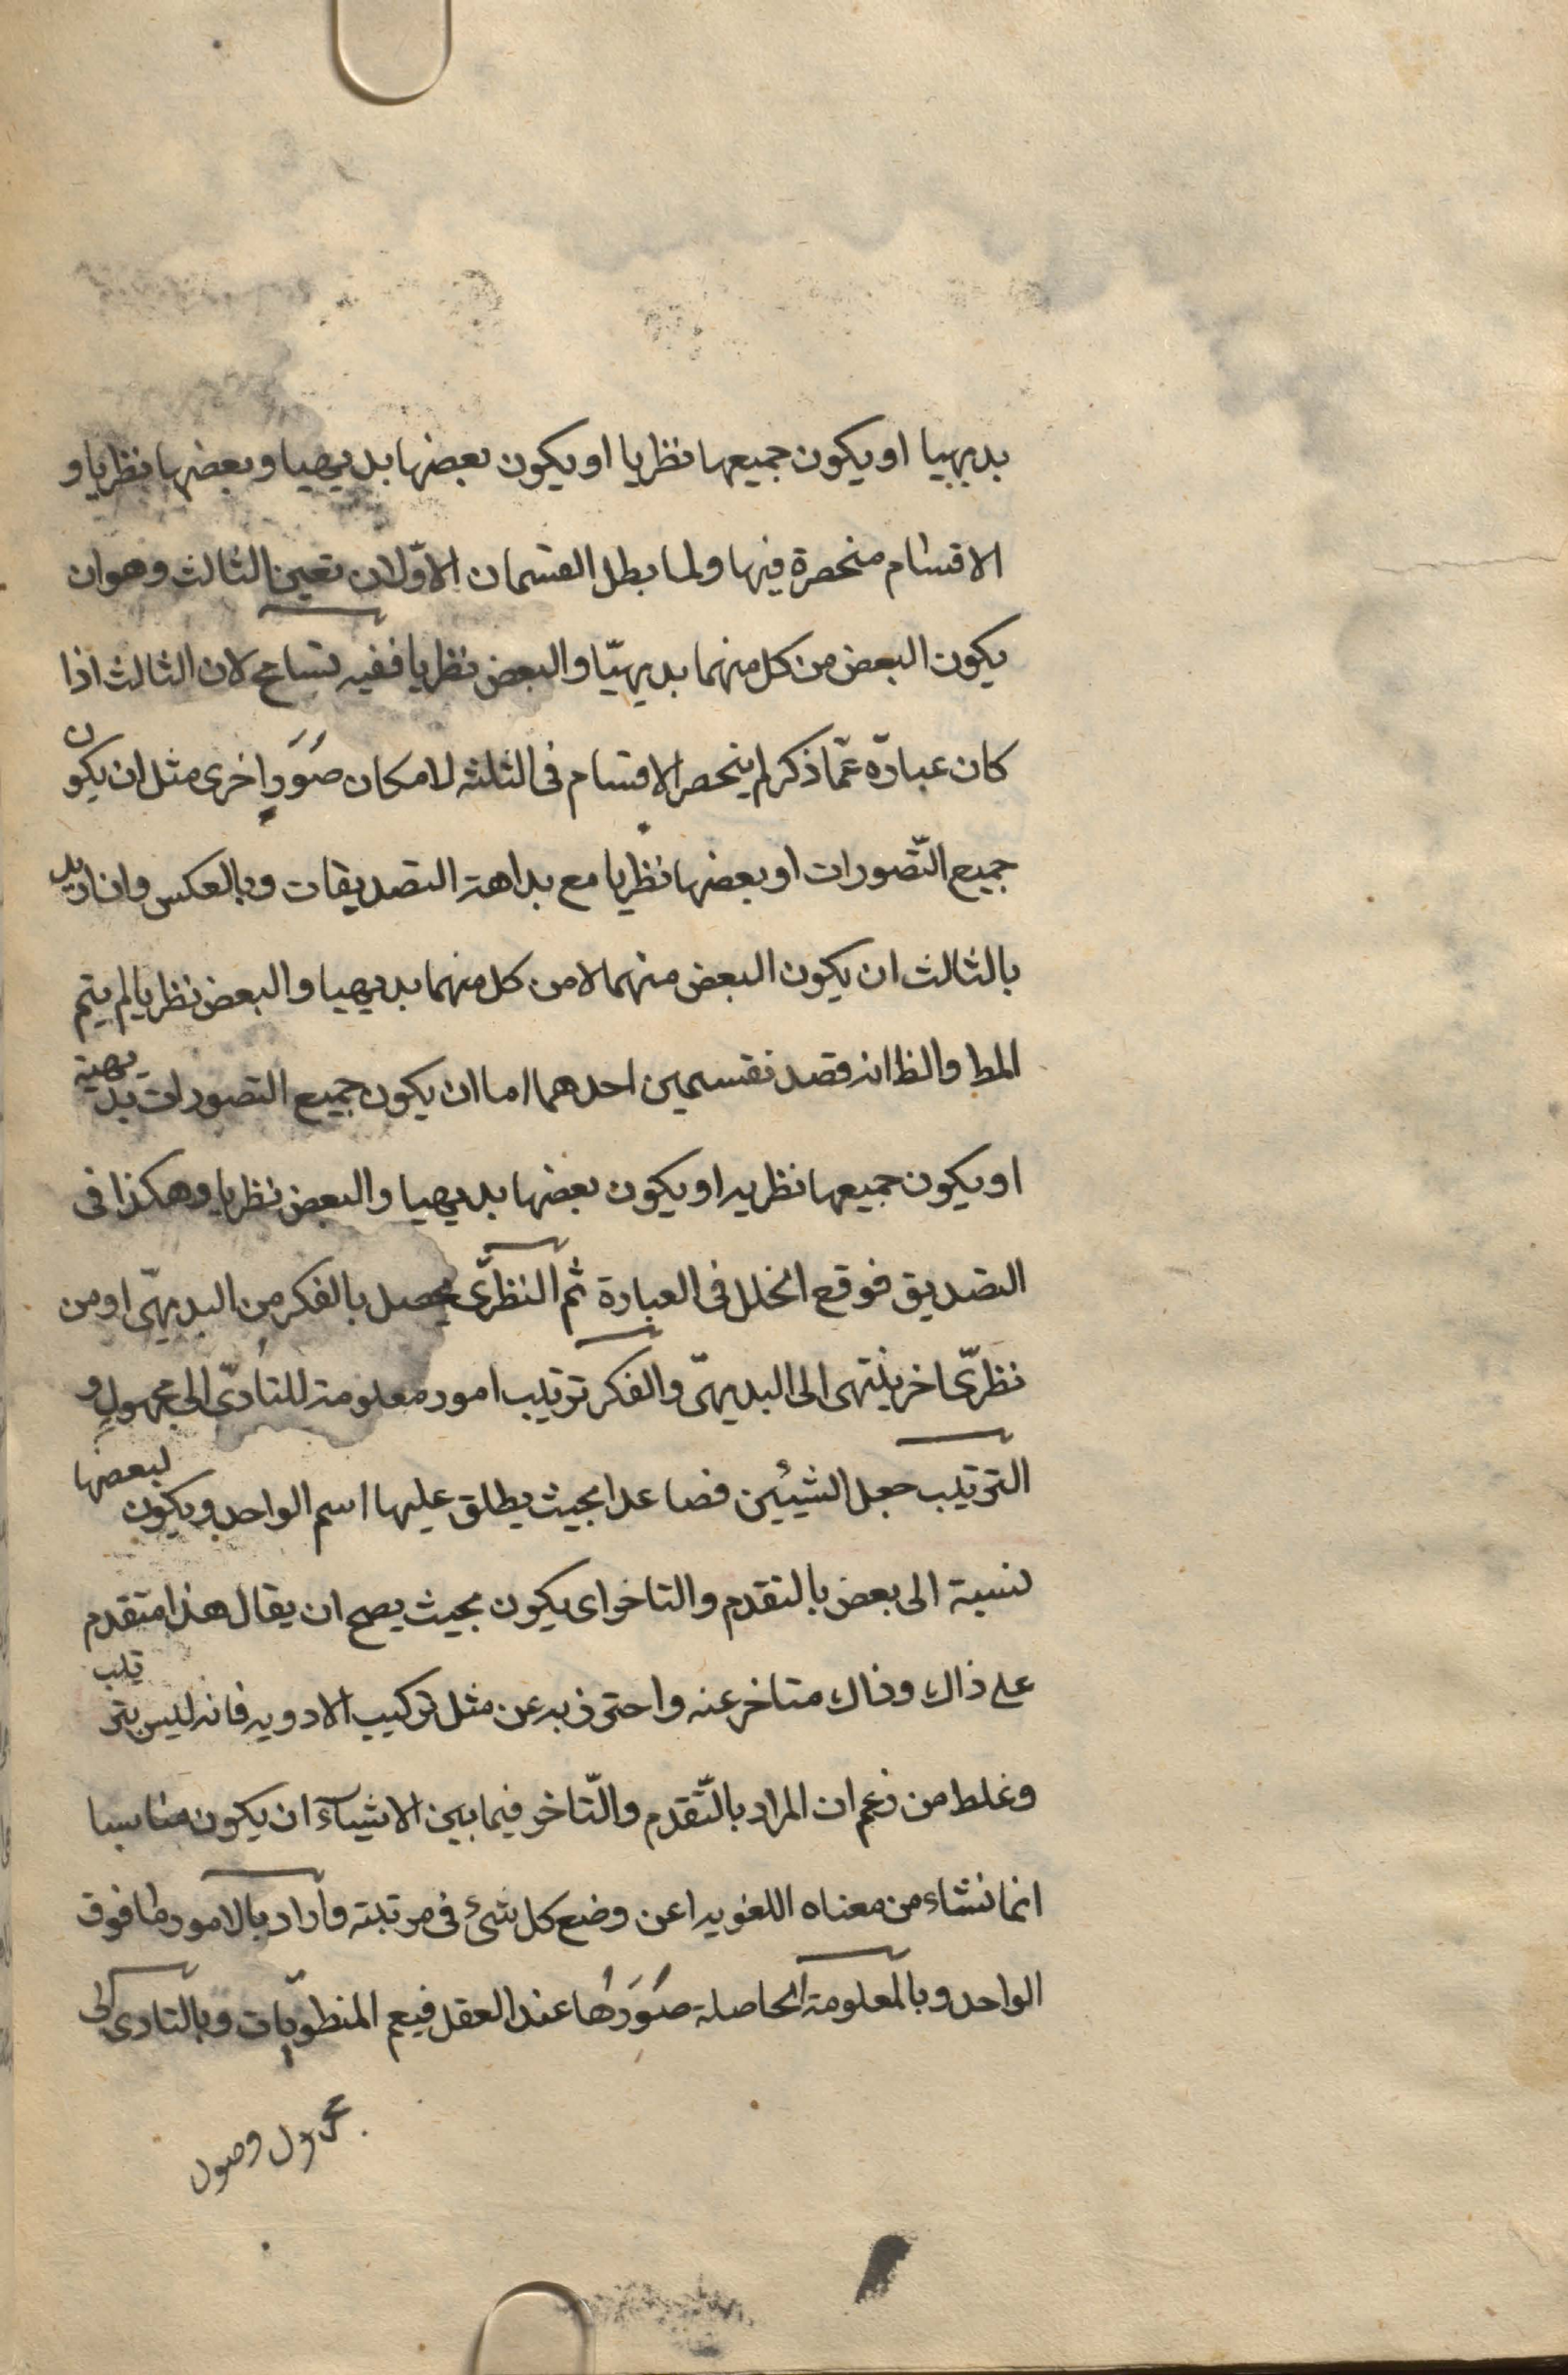 بديهيا او يكون جميعها نظريا او يكون بعضها بديهيا وبعضها نظريا و
الاقسام منحصرة فيها ولما بطل القسمان الاوّلان تعين الثالث وهو ان
يكون البعض من كل منهما بديهيّا والبعض نظريا ففيه تسامح لان الثالث اذا
كان عبارة عمّا ذكر لم ينحصر الاقسام فى الثلثه لامكان صُوَرٍ اخرى مثل ان يكون
جميع التّصورات او بعضها نظريا مع بداهة التصديقات وبالعكس وان اريد
بالثالث ان يكون البعض منهما لا من كل منهما بديهيا والبعض نظريا لم يتم
المط والظ انه قصد تقسيمين احدهما اما ان يكون جميع التصورات بديهية
او يكون جميعها نظريه او يكون بعضها بديهيا والبعض نظريا وهكذا فى
التصديق فوقع الخلل فى العبارة ثم النظرّى يحصل بالفكر من البديهّى او من
نظرّى اخر ينتهى الى البديهّى والفكر ترتيب امور معلومة للتأدّى الى مجهولٍ و
الترتيب جعل الشيئين فصاعدا بحيث يطلق عليها اسم الواحد ويكون لبعضها
نسبة الى بعض بالتقدم والتاخر اى يكون بحيث يصح ان يقال هذا متقدم
على ذاك وذاك متاخر عنه واحترز به عن مثل تركيب الادويه فانه ليس بترتيب
وغلط من زعم ان المراد بالتّقدم والتّاخر فيما بين الاشيآء ان يكون مناسبا
انما نشاء من معناه اللغويه اعن وضع كل شئ فى مرتبته واراد بالامور ما فوق
الواحد وبالمعلومة الحاصلة صُوَرُها عند العقل فيعم المنطوّيات وبالتادى الى
مجهول وصول